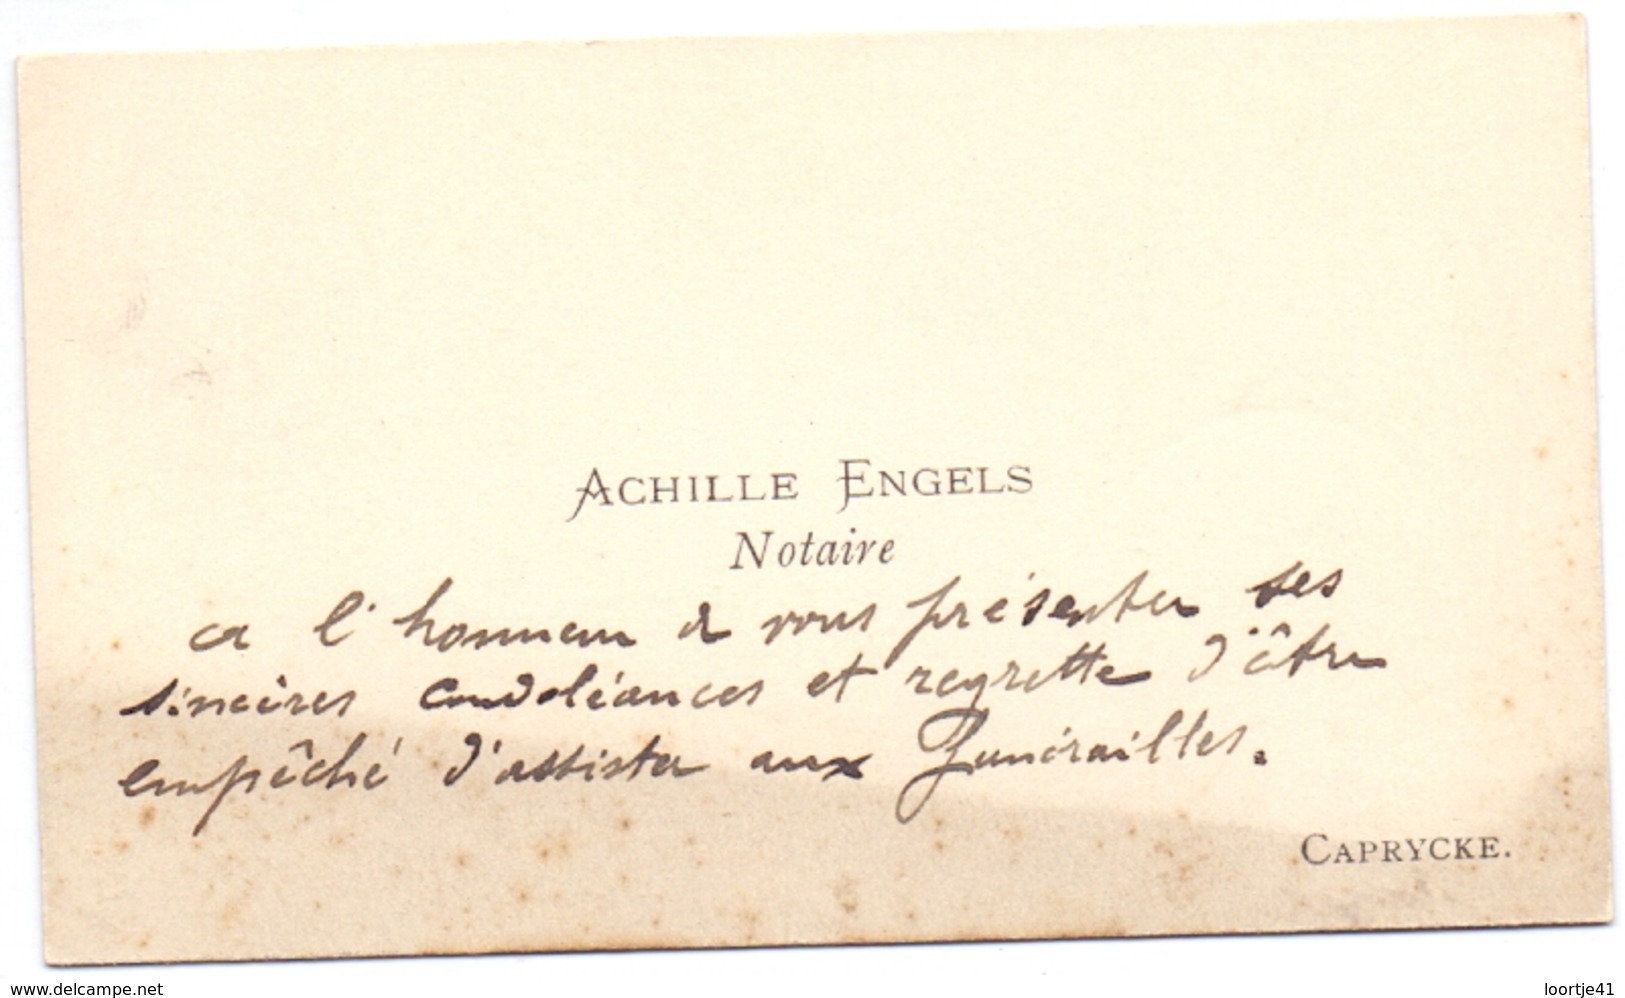 ACHILLE ENGELS
Notaire
a l'honneur de vous présenter ses
sincères condoléances et regrette d'être
empêché d'assister aux funérailles.
CAPRYCKE.
www.delcampe.net
loortje41